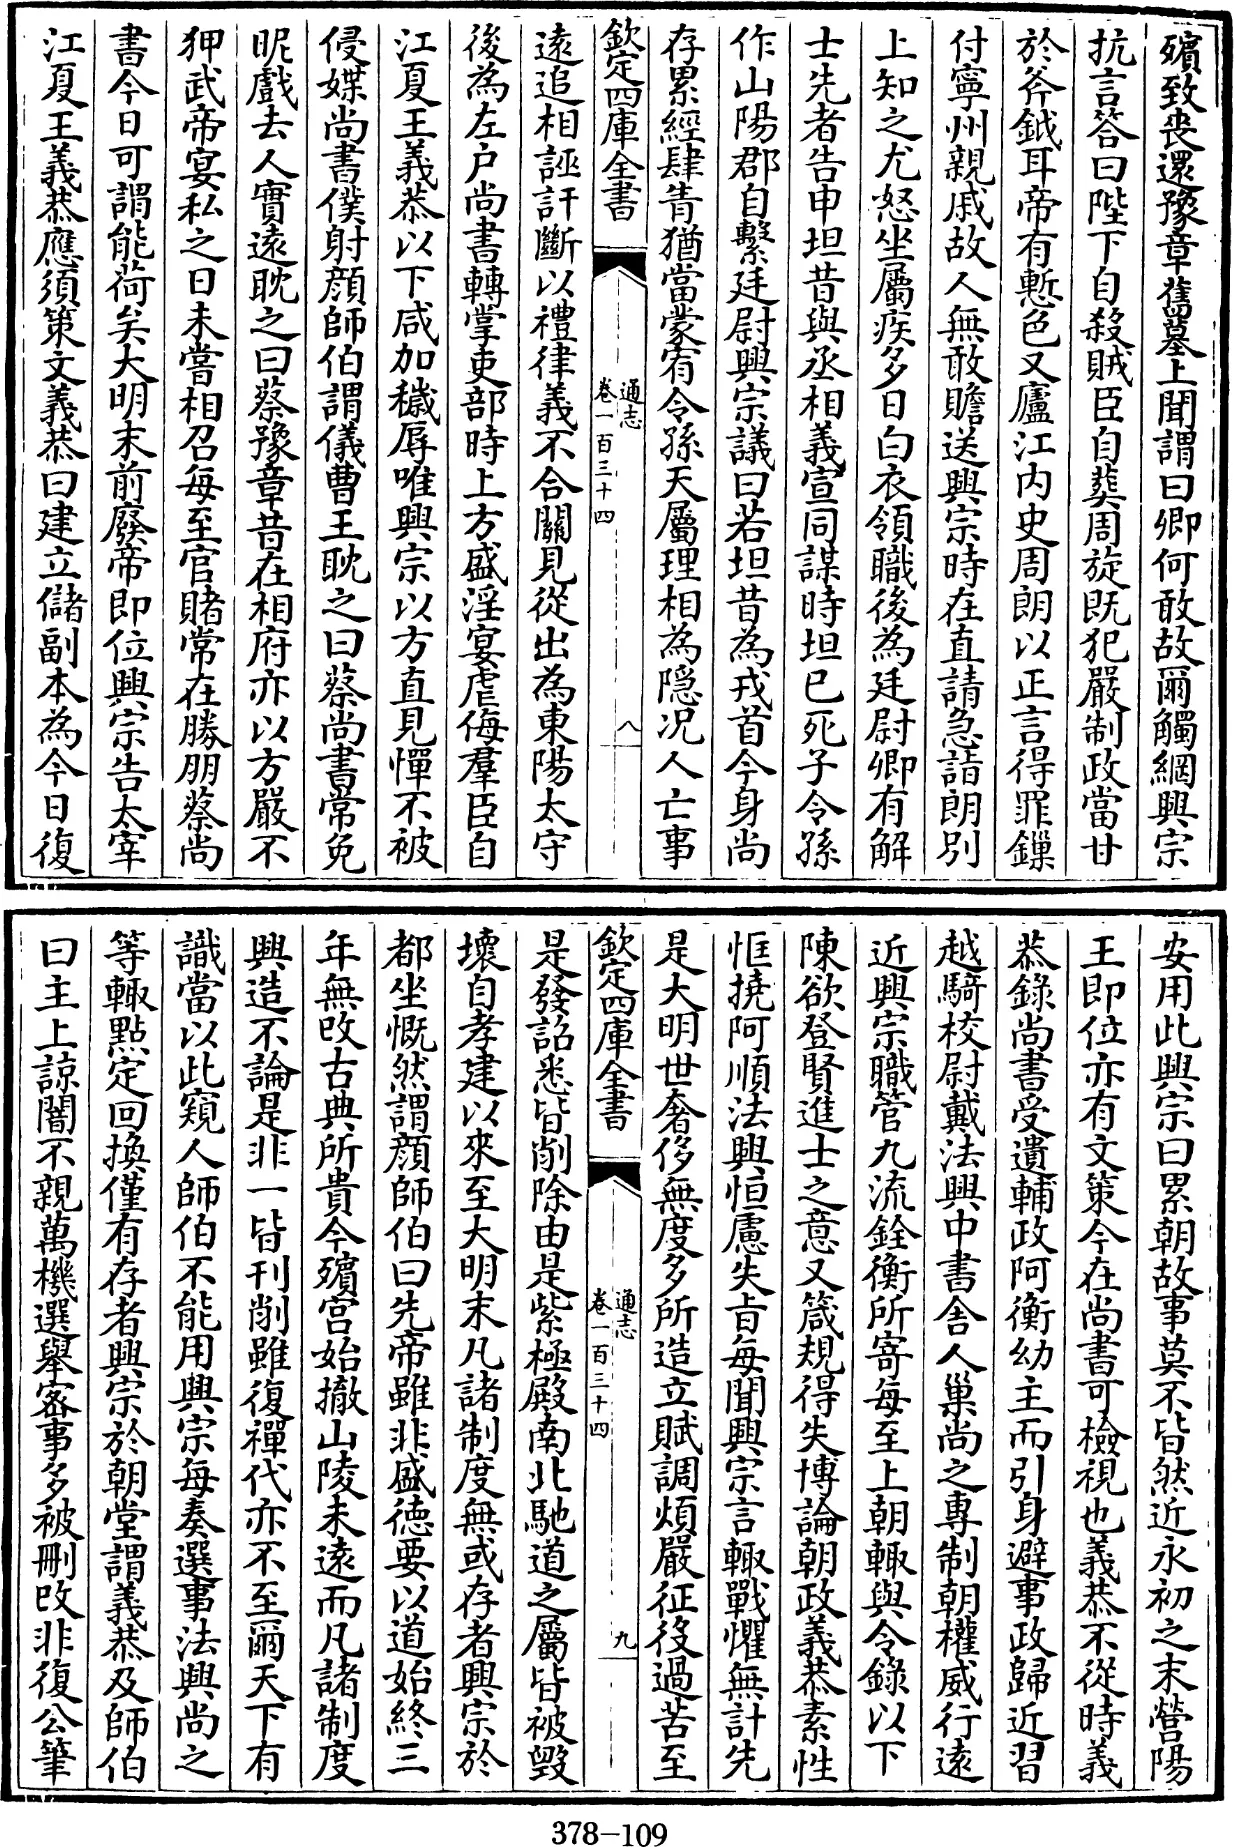 殯致喪還豫章舊墓上聞謂曰卿何敢故爾觸網興宗
抗言答曰陛下自殺賊臣自葬周旋既犯嚴制政當甘
於斧鉞耳帝有慙色又廬江内史周朗以正言得罪鏁
付寧州親戚故人無敢贍送興宗時在直請急詣朗别
上知之尤怒坐屬疾多日白衣領職後為廷尉卿有解
士先者告申坦昔與丞相義宣同謀時坦已死子令孫
作山陽郡自繫廷尉興宗議曰若坦昔為戎首今身尚
存累經肆眚猶當蒙宥令孫天屬理相為隠况人亡事
欽定四庫全書
通志
卷一百三十四
八
逺追相誣訐斷以禮律義不合關見從出為東陽太守
後為左户尚書轉掌吏部時上方盛淫宴虐侮羣臣自
江夏王義恭以下咸加穢辱唯興宗以方直見憚不被
侵媟尚書僕射顔師伯謂儀曹王耽之曰蔡尚書常免
昵戲去人實逺耽之曰蔡豫章昔在相府亦以方嚴不
狎武帝宴私之日未嘗相召每至官賭常在勝朋蔡尚
書今日可謂能荷矣大明末前廢帝即位興宗告太宰
江夏王義恭應須策文義恭曰建立儲副本為今日復
安用此興宗曰累朝故事莫不皆然近永初之末營陽
王即位亦有文策今在尚書可檢視也義恭不從時義
恭錄尚書受遺輔政阿衡幼主而引身避事政歸近習
越騎校尉戴法興中書舍人巢尚之專制朝權威行逺
近興宗職管九流銓衡所寄每至上朝輒與令錄以下
陳欲登賢進士之意又箴規得失博論朝政義恭素性
恇撓阿順法興恒慮失旨每聞興宗言輒戰懼無計先
是大明世奢侈無度多所造立賦調煩嚴征役過苦至
欽定四庫全書
通志
卷一百三十四
九
是發詔悉皆削除由是紫極殿南北馳道之屬皆被毁
壞自孝建以來至大明末凡諸制度無或存者興宗於
都坐慨然謂顔師伯曰先帝雖非盛徳要以道始終三
年無改古典所貴今殯宫始撤山陵未逺而凡諸制度
興造不論是非一皆刊削雖復禪代亦不至爾天下有
識當以此窺人師伯不能用興宗每奏選事法興尚之
等輒點定回換僅有存者興宗於朝堂謂義恭及師伯
曰主上諒闇不親萬機選舉密事多被刪改非復公筆
378-109